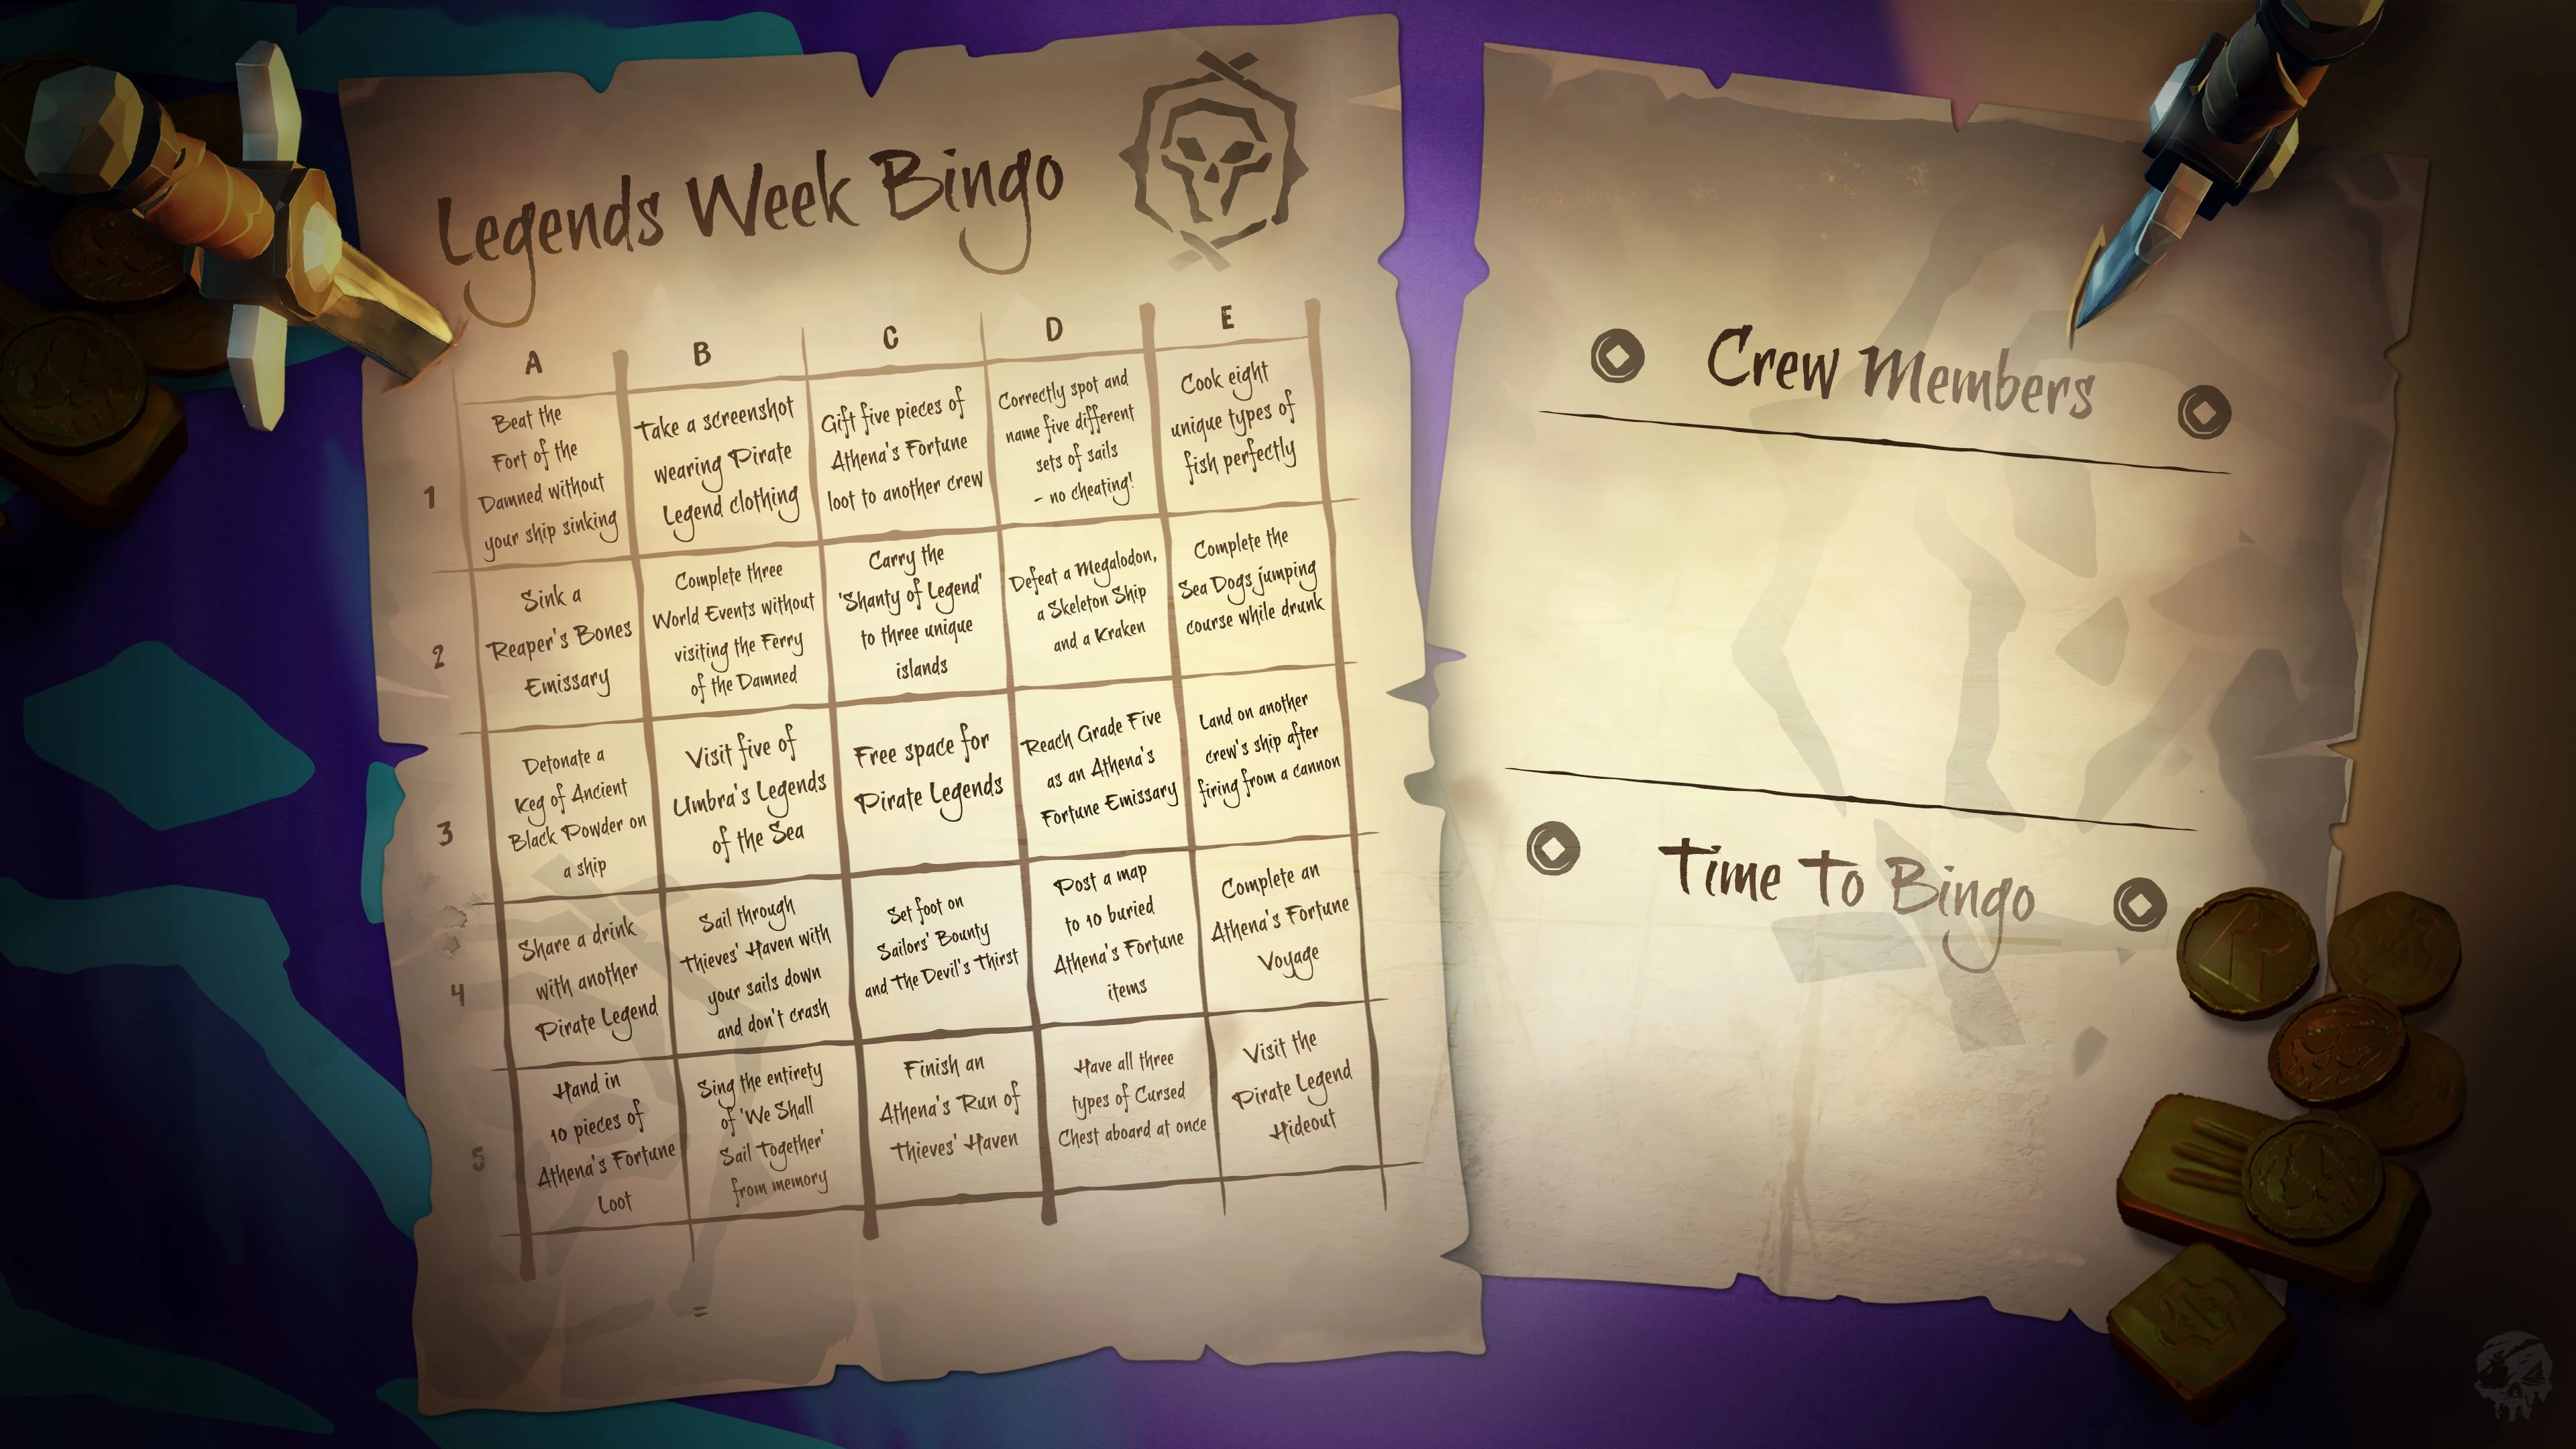 Legends Week Bingo
A
B
C
D
E
1
Beat the
Fort of the
Damned without
your ship sinking
Take a screenshot
wearing Pirate
Legend clothing
Gift five pieces of
Athena's Fortune
loot to another crew
Correctly spot and
name five different
sets of sails
- no cheating!
Cook eight
unique types of
fish perfectly
2
Sink a
Reaper's Bones
Emissary
Complete three
World Events without
visiting the Ferry
of the Damned
Carry the
'Shanty of Legend'
to three unique
islands
Defeat a Megalodon,
a Skeleton Ship
and a Kraken
Complete the
Sea Dogs jumping
course while drunk
3
Detonate a
Keg of Ancient
Black Powder on
a ship
Visit five of
Umbra's Legends
of the Sea
Free space for
Pirate Legends
Reach Grade Five
as an Athena's
Fortune Emissary
Land on another
crew's ship after
firing from a cannon
4
Share a drink
with another
Pirate Legend
Sail through
Thieves' Haven with
your sails down
and don't crash
Set foot on
Sailors' Bounty
and The Devil's Thirst
Post a map
to 10 buried
Athena's Fortune
items
Complete an
Athena's Fortune
Voyage
5
Hand in
10 pieces of
Athena's Fortune
Loot
Sing the entirety
of 'We Shall
Sail Together'
from memory
Finish an
Athena's Run of
Thieves' Haven
Have all three
types of Cursed
Chest aboard at once
Visit the
Pirate Legend
Hideout
=
Crew Members
Time To Bingo